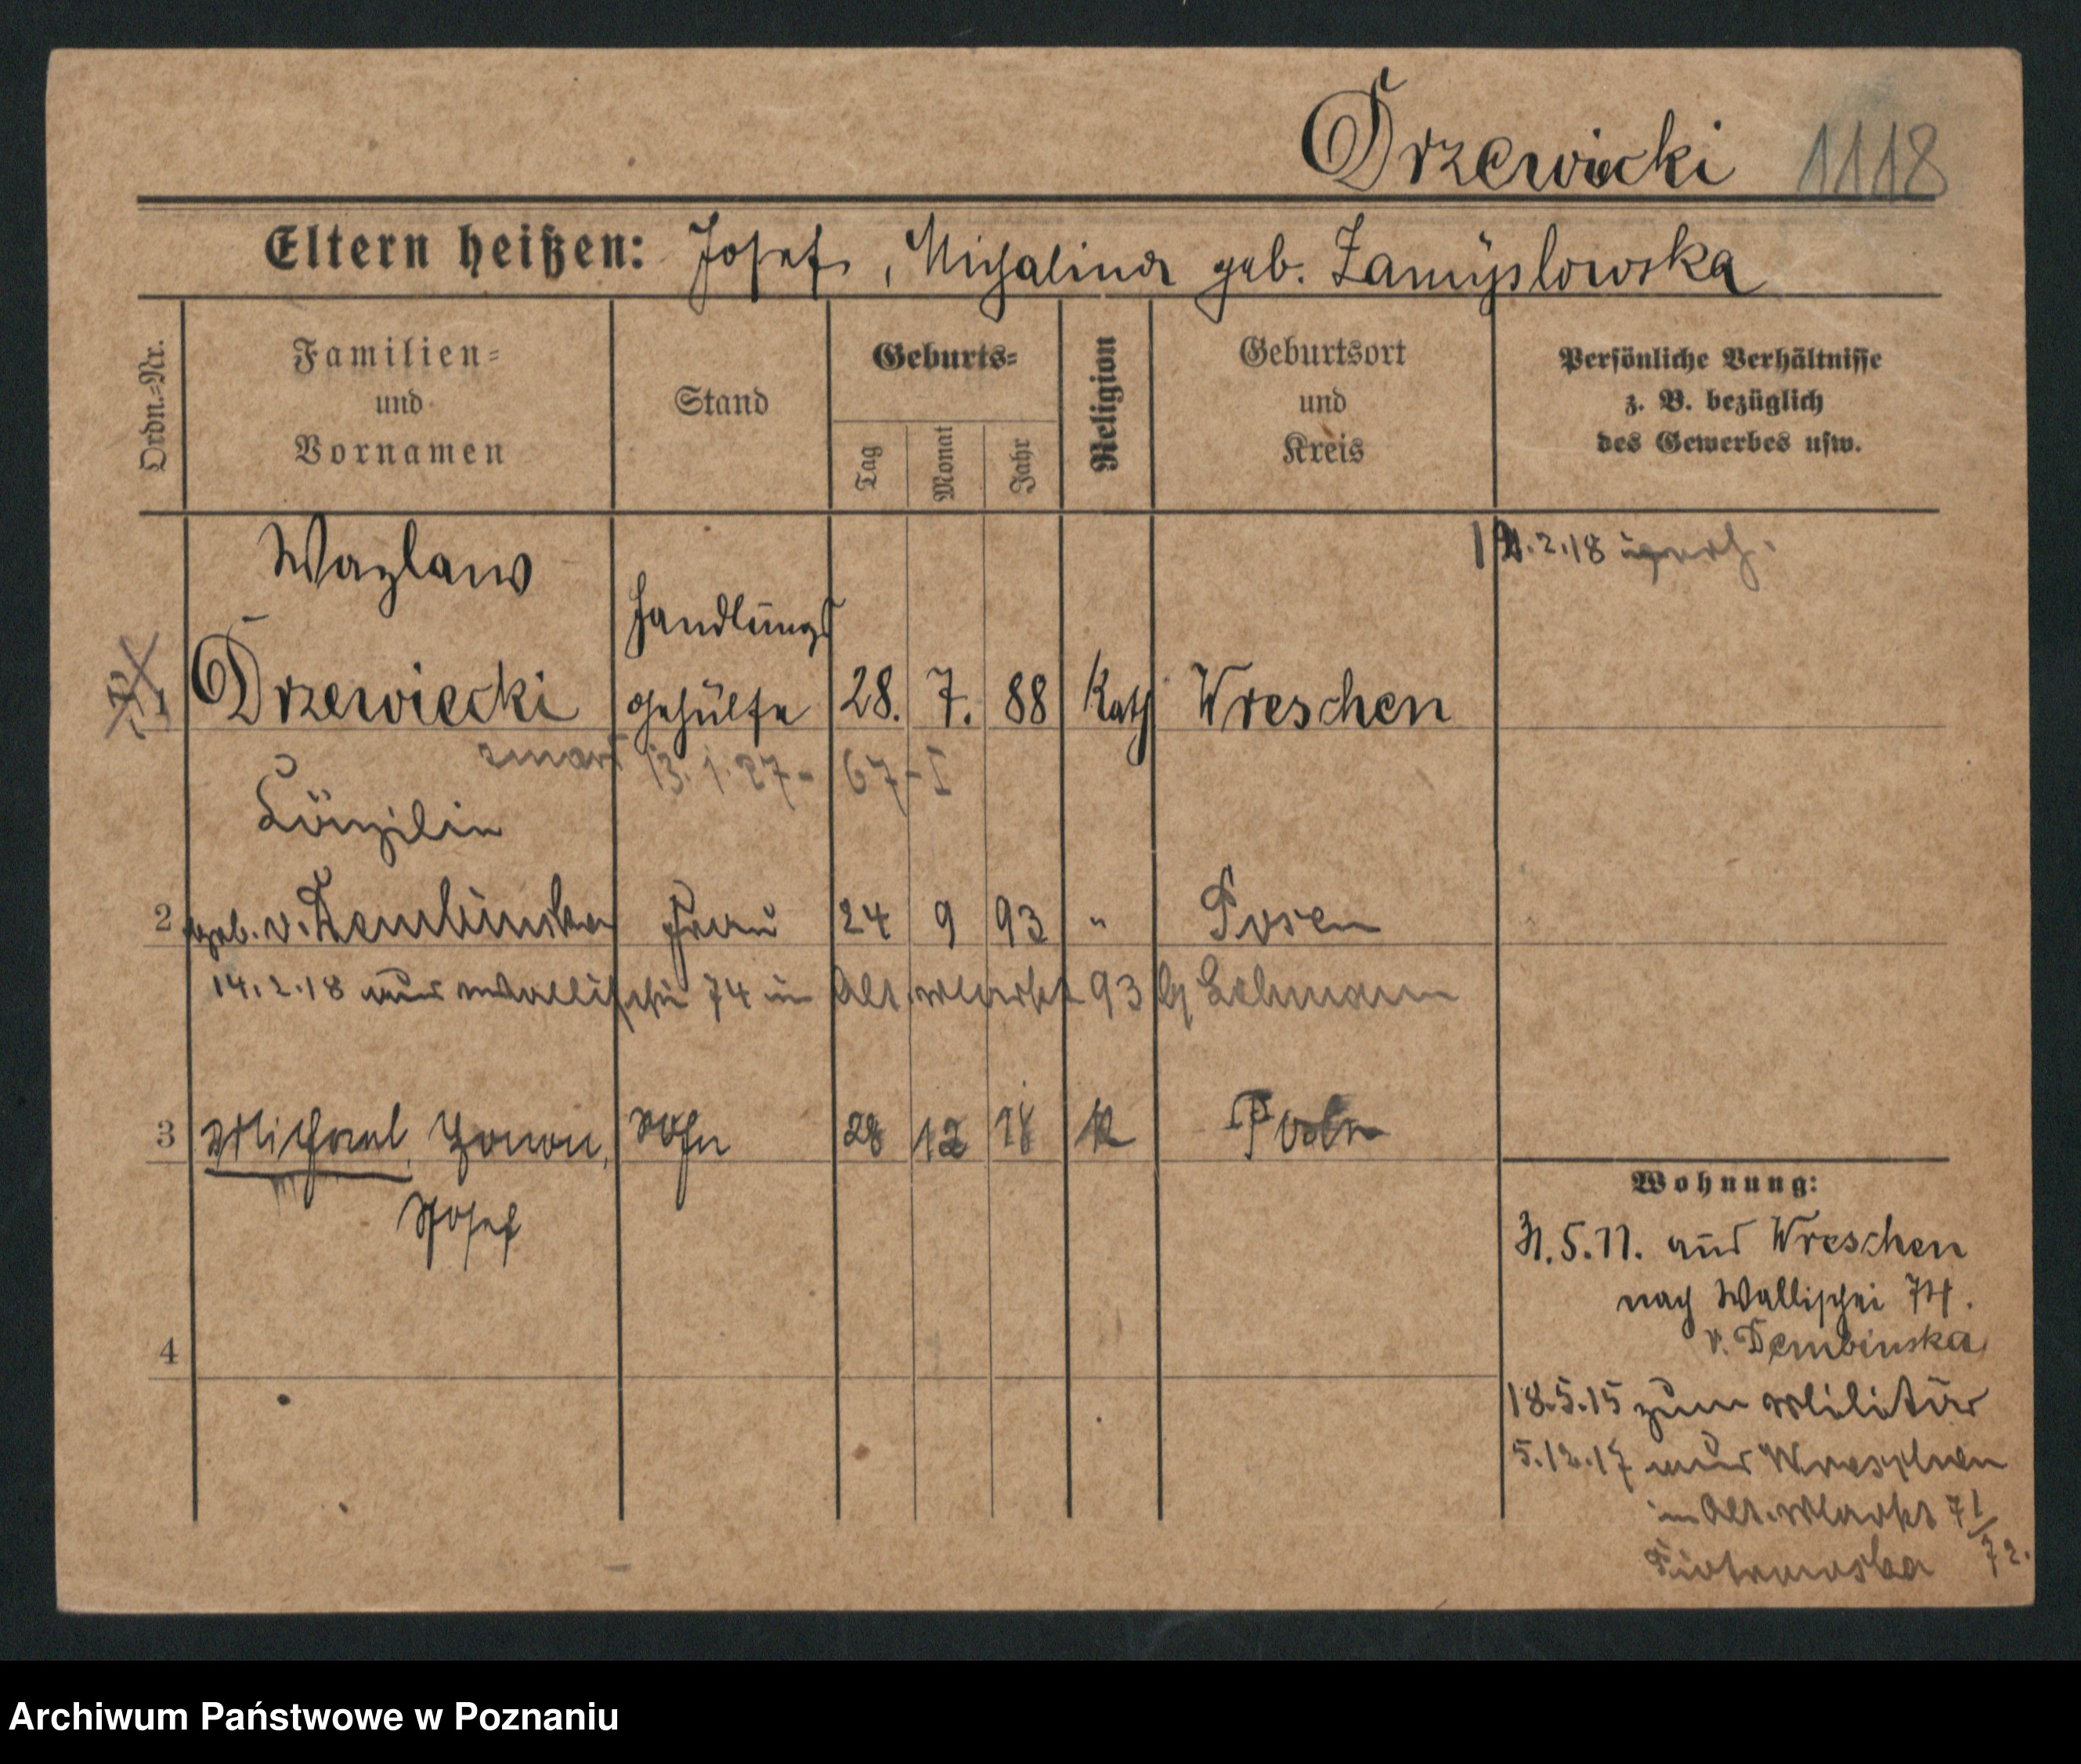 Drzewiecki 1118
Eltern heißen: Josef, Michalina geb. Zamyslowska
Ordn.=Nr.
Familien=
und
Vornamen
Stand
Geburts=
Tag
Monat
Jahr
Religion
Geburtsort
und
Kreis
Persönliche Verhältnisse
z. B. bezüglich
des Gewerbes usw.
Wazlaw
.2.18
Handlungs
Drzewiecki gehülfe 28. 7. 88 Kath Wreschen
zmarł 13.1.27 - 67 - I
2 geb. v. Dembinska Frau 24 9 93 " Posen
14.2.18 aus Wallischei 74 in Alt. Markt 93 Lehmann
3 Michael, Zenon, Sohn 28 12 18 K Posen
Josef
Wohnung:
31.5.11. aus Wreschen
nach Wallischei 74.
v. Dembinska
4
18.5.15 zum Militär
5.12.17 aus Wreschen
in Alt. Markt 71/72.
Piotrowska
Archiwum Państwowe w Poznaniu